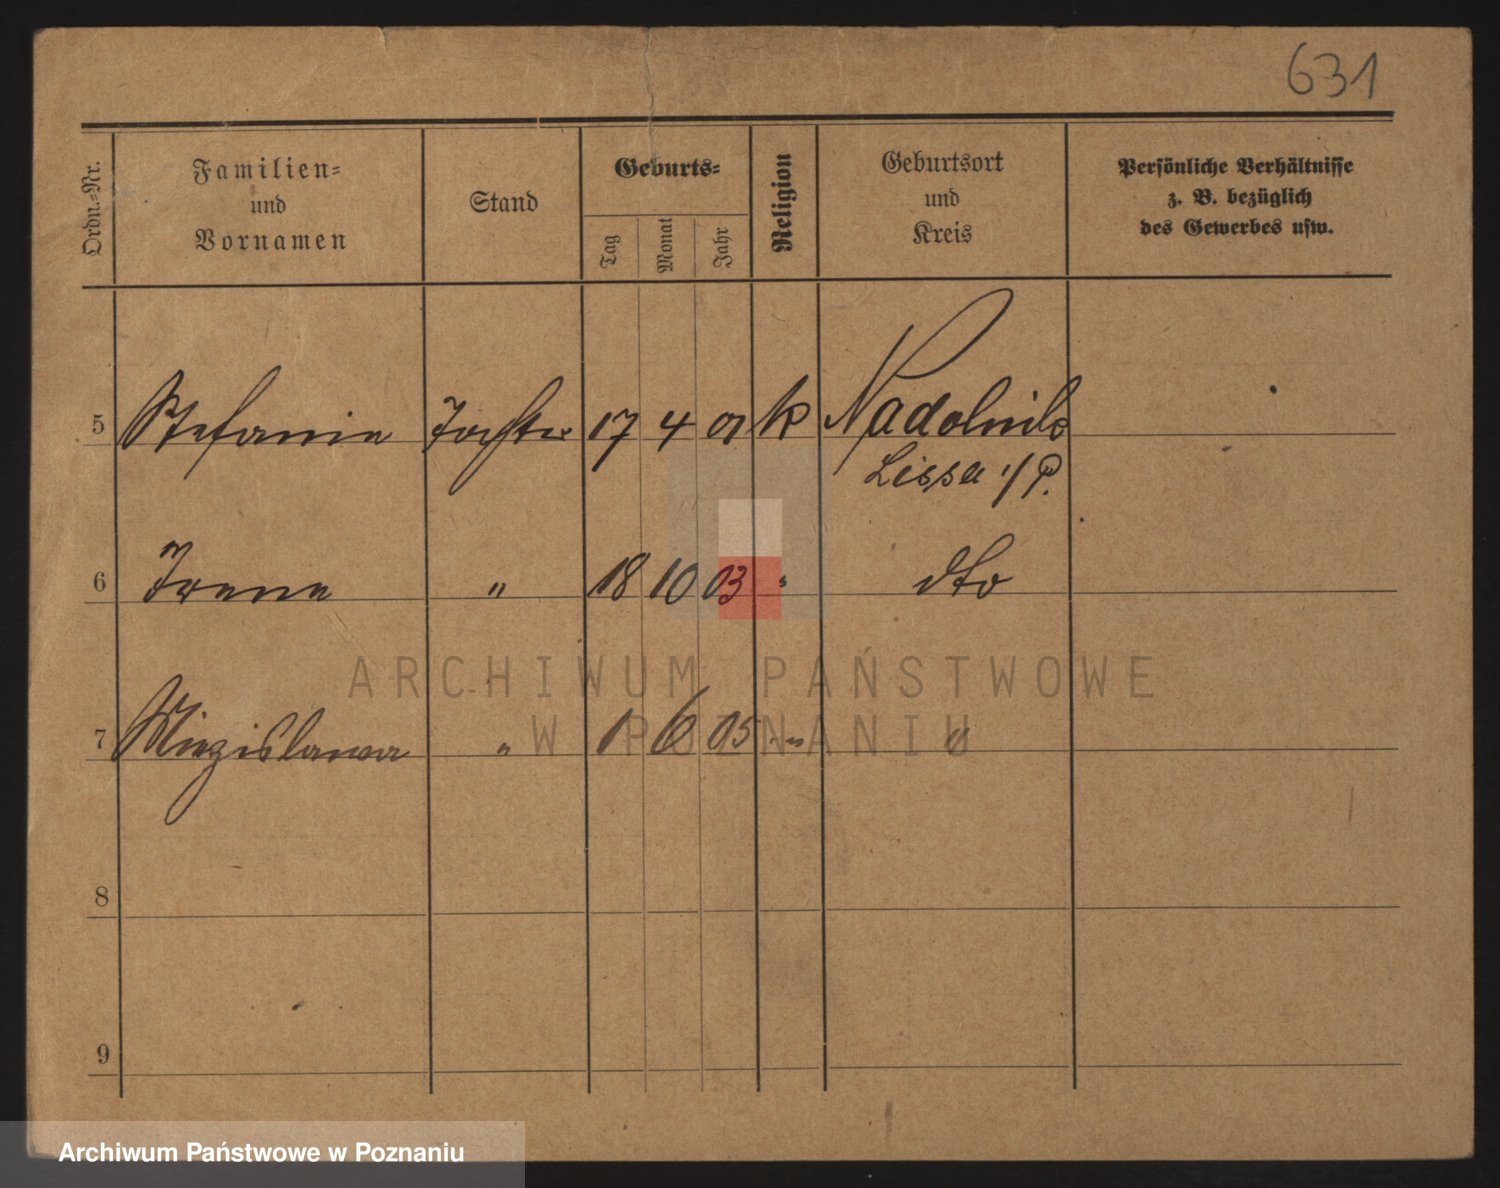 631
Ordn.-Nr.
Familien-
und
Vornamen
Stand
Geburts-
Tag
Monat
Jahr
Religion
Geburtsort
und
Kreis
Persönliche Verhältnisse
z. B. bezüglich
des Gewerbes usw.
5 Stefanie Tochter 17 4 01 k Nadolnik
Lissa i/P.
6 Irene " 18 10 03 " dto
7 Miezislawa " 1 6 05 " "
8
9
ARCHIWUM PAŃSTWOWE
W POZNANIU
Archiwum Państwowe w Poznaniu